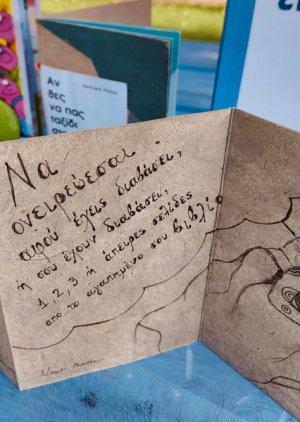 Αν
θες
να πας
ταξίδι
Να
ονειρεύεσαι
αφού έχεις διαβάσει,
ή σου έχουν διαβάσει,
1, 2, 3 ή άπειρες σελίδες
από το αγαπημένο σου βιβλίο